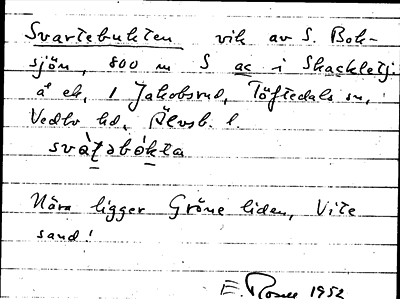 Svartebukten vik av S. Bok-
sjön, 800 m S ac i Skackletj.
å ek, 1 Jakobsrud, Töftedals sn,
Vedbo hd, Älvsb. l.
svàʈəbókta
Nära ligger Gröne liden, Vite
sand!
E. 1952